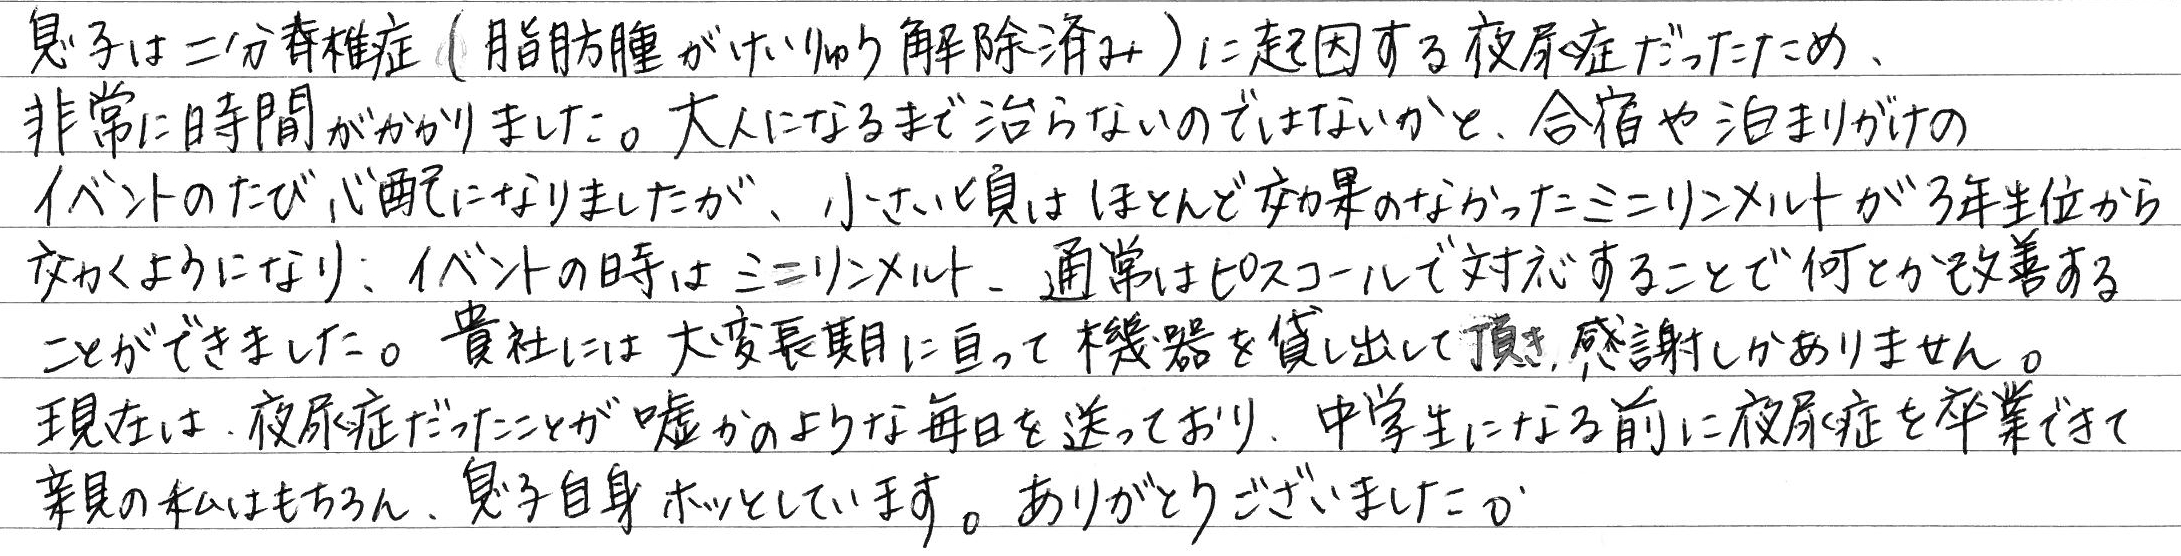 息子は二分脊椎症(脂肪腫がけいりゅう解除済み)に起因する夜尿症だったため、
非常に時間がかかりました。大人になるまで治らないのではないかと、合宿や泊まりがけの
イベントのたび心配になりましたが、小さい頃はほとんど効果のなかったミニリンメルトが3年生位から
効くようになり、イベントの時はミニリンメルト、通常はピスコールで対応することで何とか改善する
ことができました。貴社には大変長期に亘って機器を貸し出して頂き、感謝しかありません。
現在は、夜尿症だったことが嘘かのような毎日を送っており、中学生になる前に夜尿症を卒業できて
親の私はもちろん、息子自身ホッとしています。ありがとうございました。